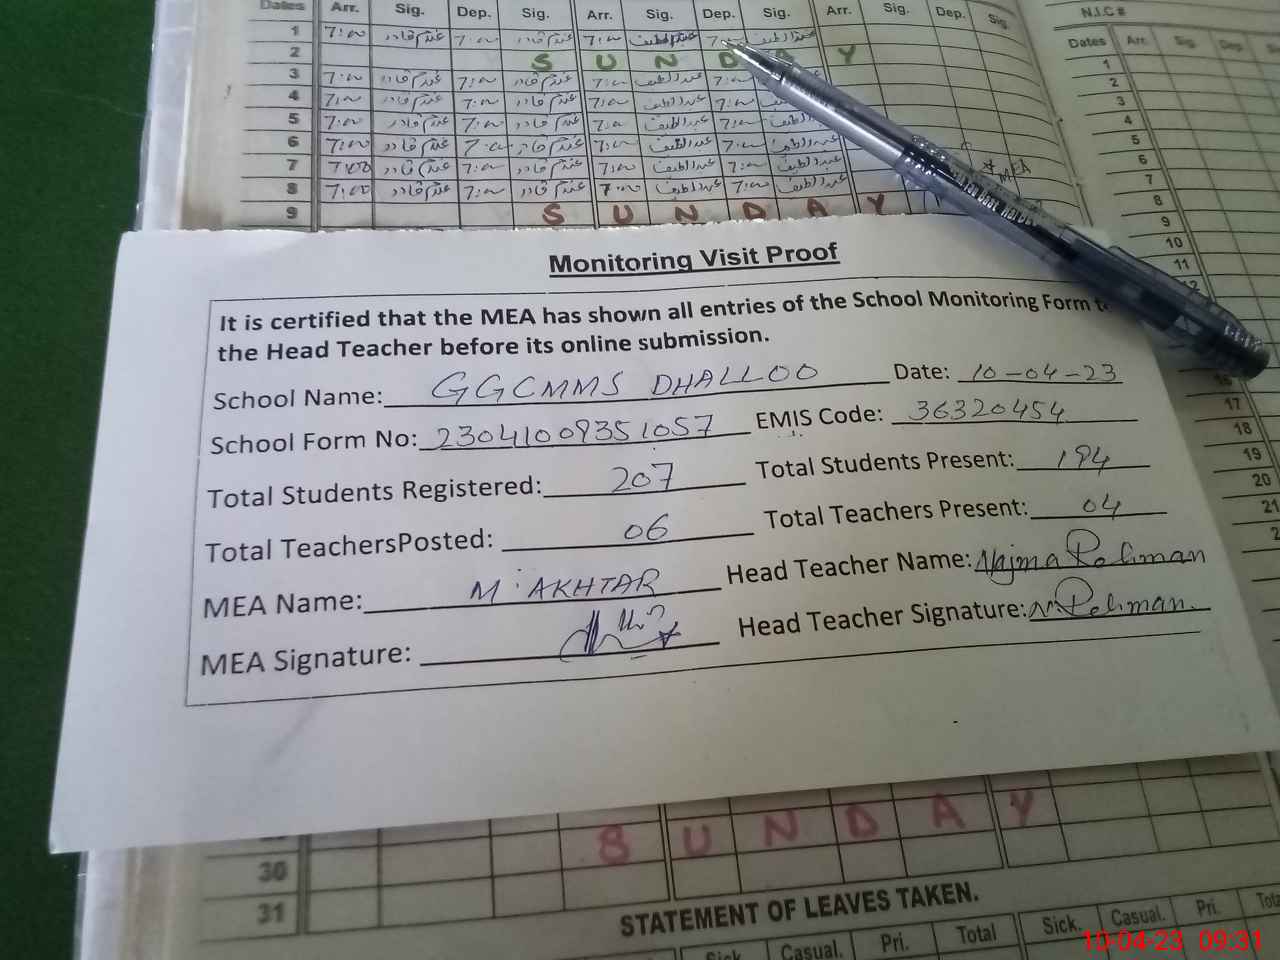 Dates Arr. Sig. Dep. Sig. Arr. Sig. Dep. Sig. Arr. Sig. Dep. Sig.
1 7:00 7:00 7:00 عبداللطیف 7:00 عبداللطیف
2 S U N D A Y
3 7:00 7:00 7:00 عبداللطیف 7:00
4 7:00 7:00 7:00 عبداللطیف 7:00
5 7:00 7:00 7:00 عبداللطیف 7:00
6 7:00 7:00 7:00 عبداللطیف 7:00 عبداللطیف
7 7:00 7:00 7:00 عبداللطیف 7:00 عبداللطیف
8 7:00 7:00 7:00 عبداللطیف 7:00 عبداللطیف
9 S U N D A Y
MEA
N.I.C #
Dates Arr. Sig. Dep.
1
2
3
4
5
6
7
8
9
10
11
12
Monitoring Visit Proof
It is certified that the MEA has shown all entries of the School Monitoring Form
the Head Teacher before its online submission.
School Name: GGCMMS DHALLOO Date: 10-04-23
School Form No: 23041009351057 EMIS Code: 36320454
Total Students Registered: 207 Total Students Present: 194
Total TeachersPosted: 06 Total Teachers Present: 04
MEA Name: M. AKHTAR Head Teacher Name: Najma Rehman
MEA Signature: Head Teacher Signature: N Rehman.
16
17
18
19
20
21
S U N D A Y
30
31
STATEMENT OF LEAVES TAKEN.
Sick Casual. Pri. Total Sick. Casual. Pri.
10-04-23 09:31